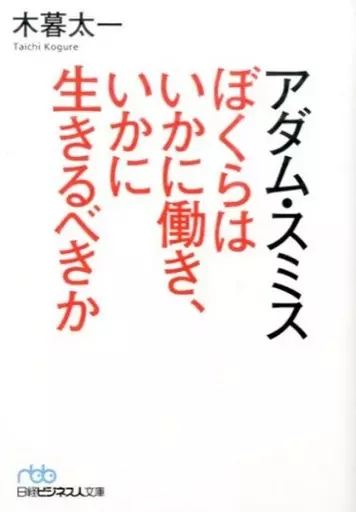 木暮太一
Taichi Kogure
アダム・スミス
ぼくらは
いかに働き、
いかに
生きるべきか
nbb
日経ビジネス人文庫